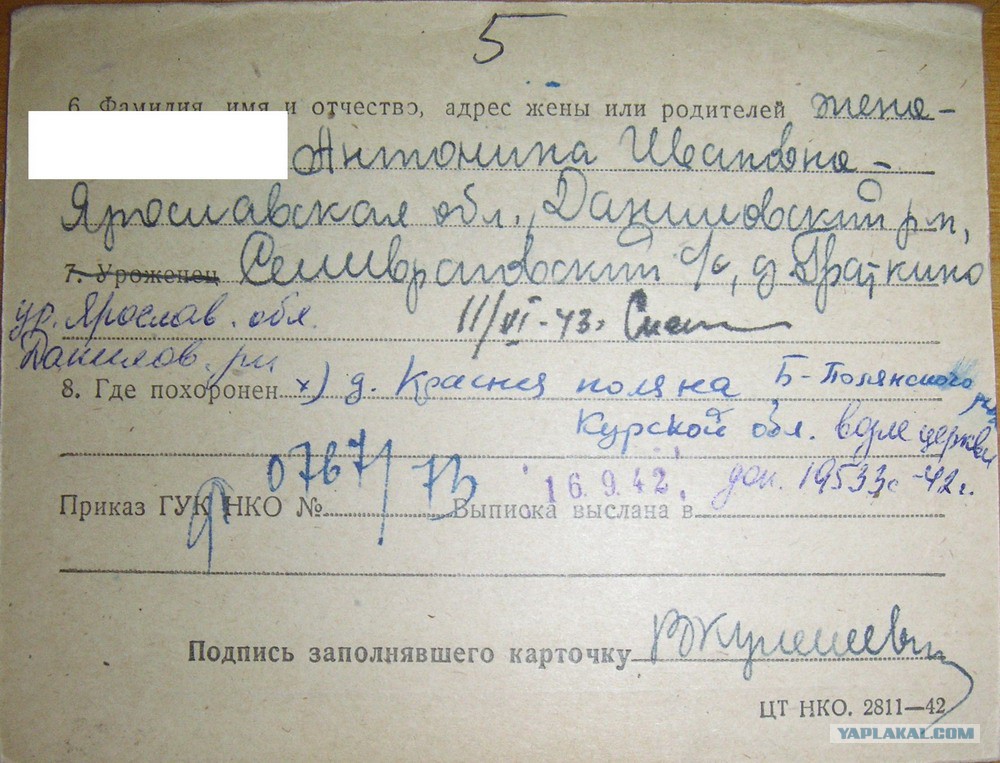 5
6. Фамилия, имя и отчество, адрес жены или родителей жена -
Антонина Ивановна -
Ярославская обл., Даниловский р-н,
7. Уроженец Селивратовский с/с, д.
ур. Ярослав. обл. 11/VI-43г.
Данилов. р-н
8. Где похоронен х) д. Красная поляна Б-Полянского
Курской обл. возле церкви
0767/73 16.9.42. доп. 19533с-42г.
Приказ ГУК НКО № Выписка выслана в
Подпись заполнявшего карточку
ЦТ НКО. 2811—42
YAPLAKAL.COM